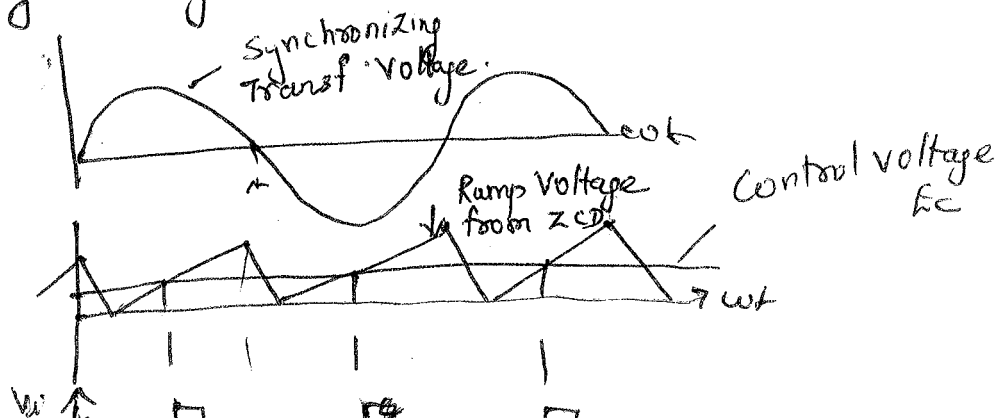 Synchronizing
Transf. Voltage.
ωt
π
Ramp Voltage
from ZCD
Control voltage
Ec
ωt